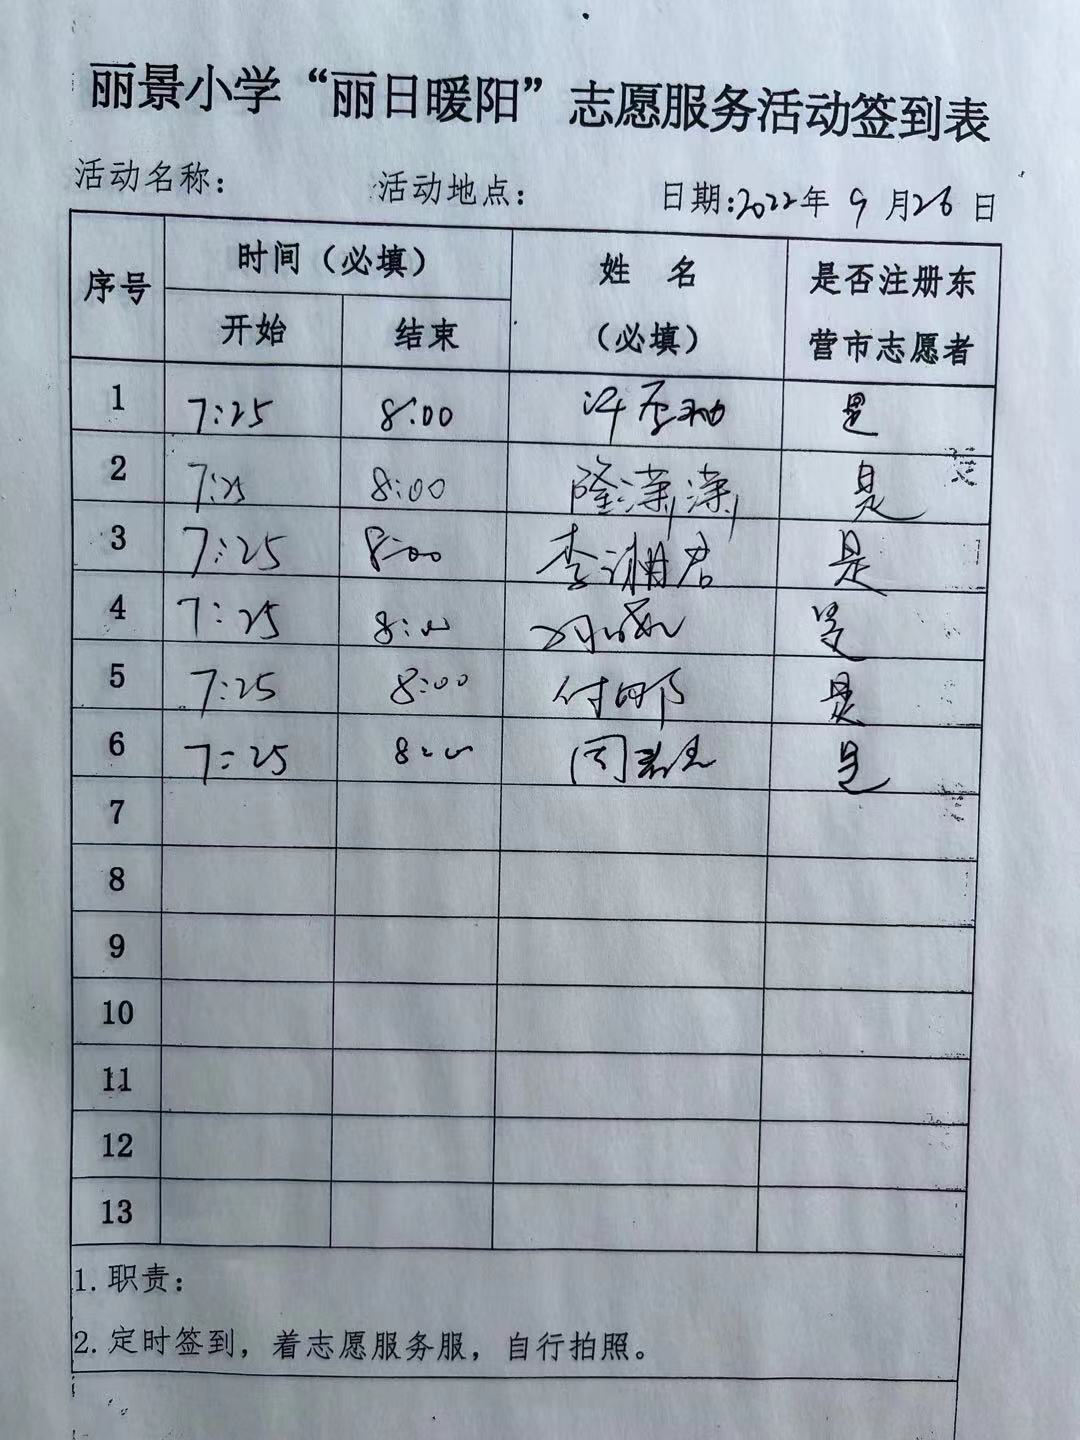 丽景小学“丽日暖阳”志愿服务活动签到表
活动名称: 活动地点: 日期:2022年 9 月26 日
序号 时间（必填） 姓 名（必填） 是否注册东营市志愿者
开始 结束
1 7:25 8:00 是
2 7:25 8:00 隆潇潇 是
3 7:25 8:00 李湘君 是
4 7:25 8:00 是
5 7:25 8:00 付娜 是
6 7:25 8:00 周 是
7
8
9
10
11
12
13
1.职责:
2.定时签到，着志愿服务服，自行拍照。